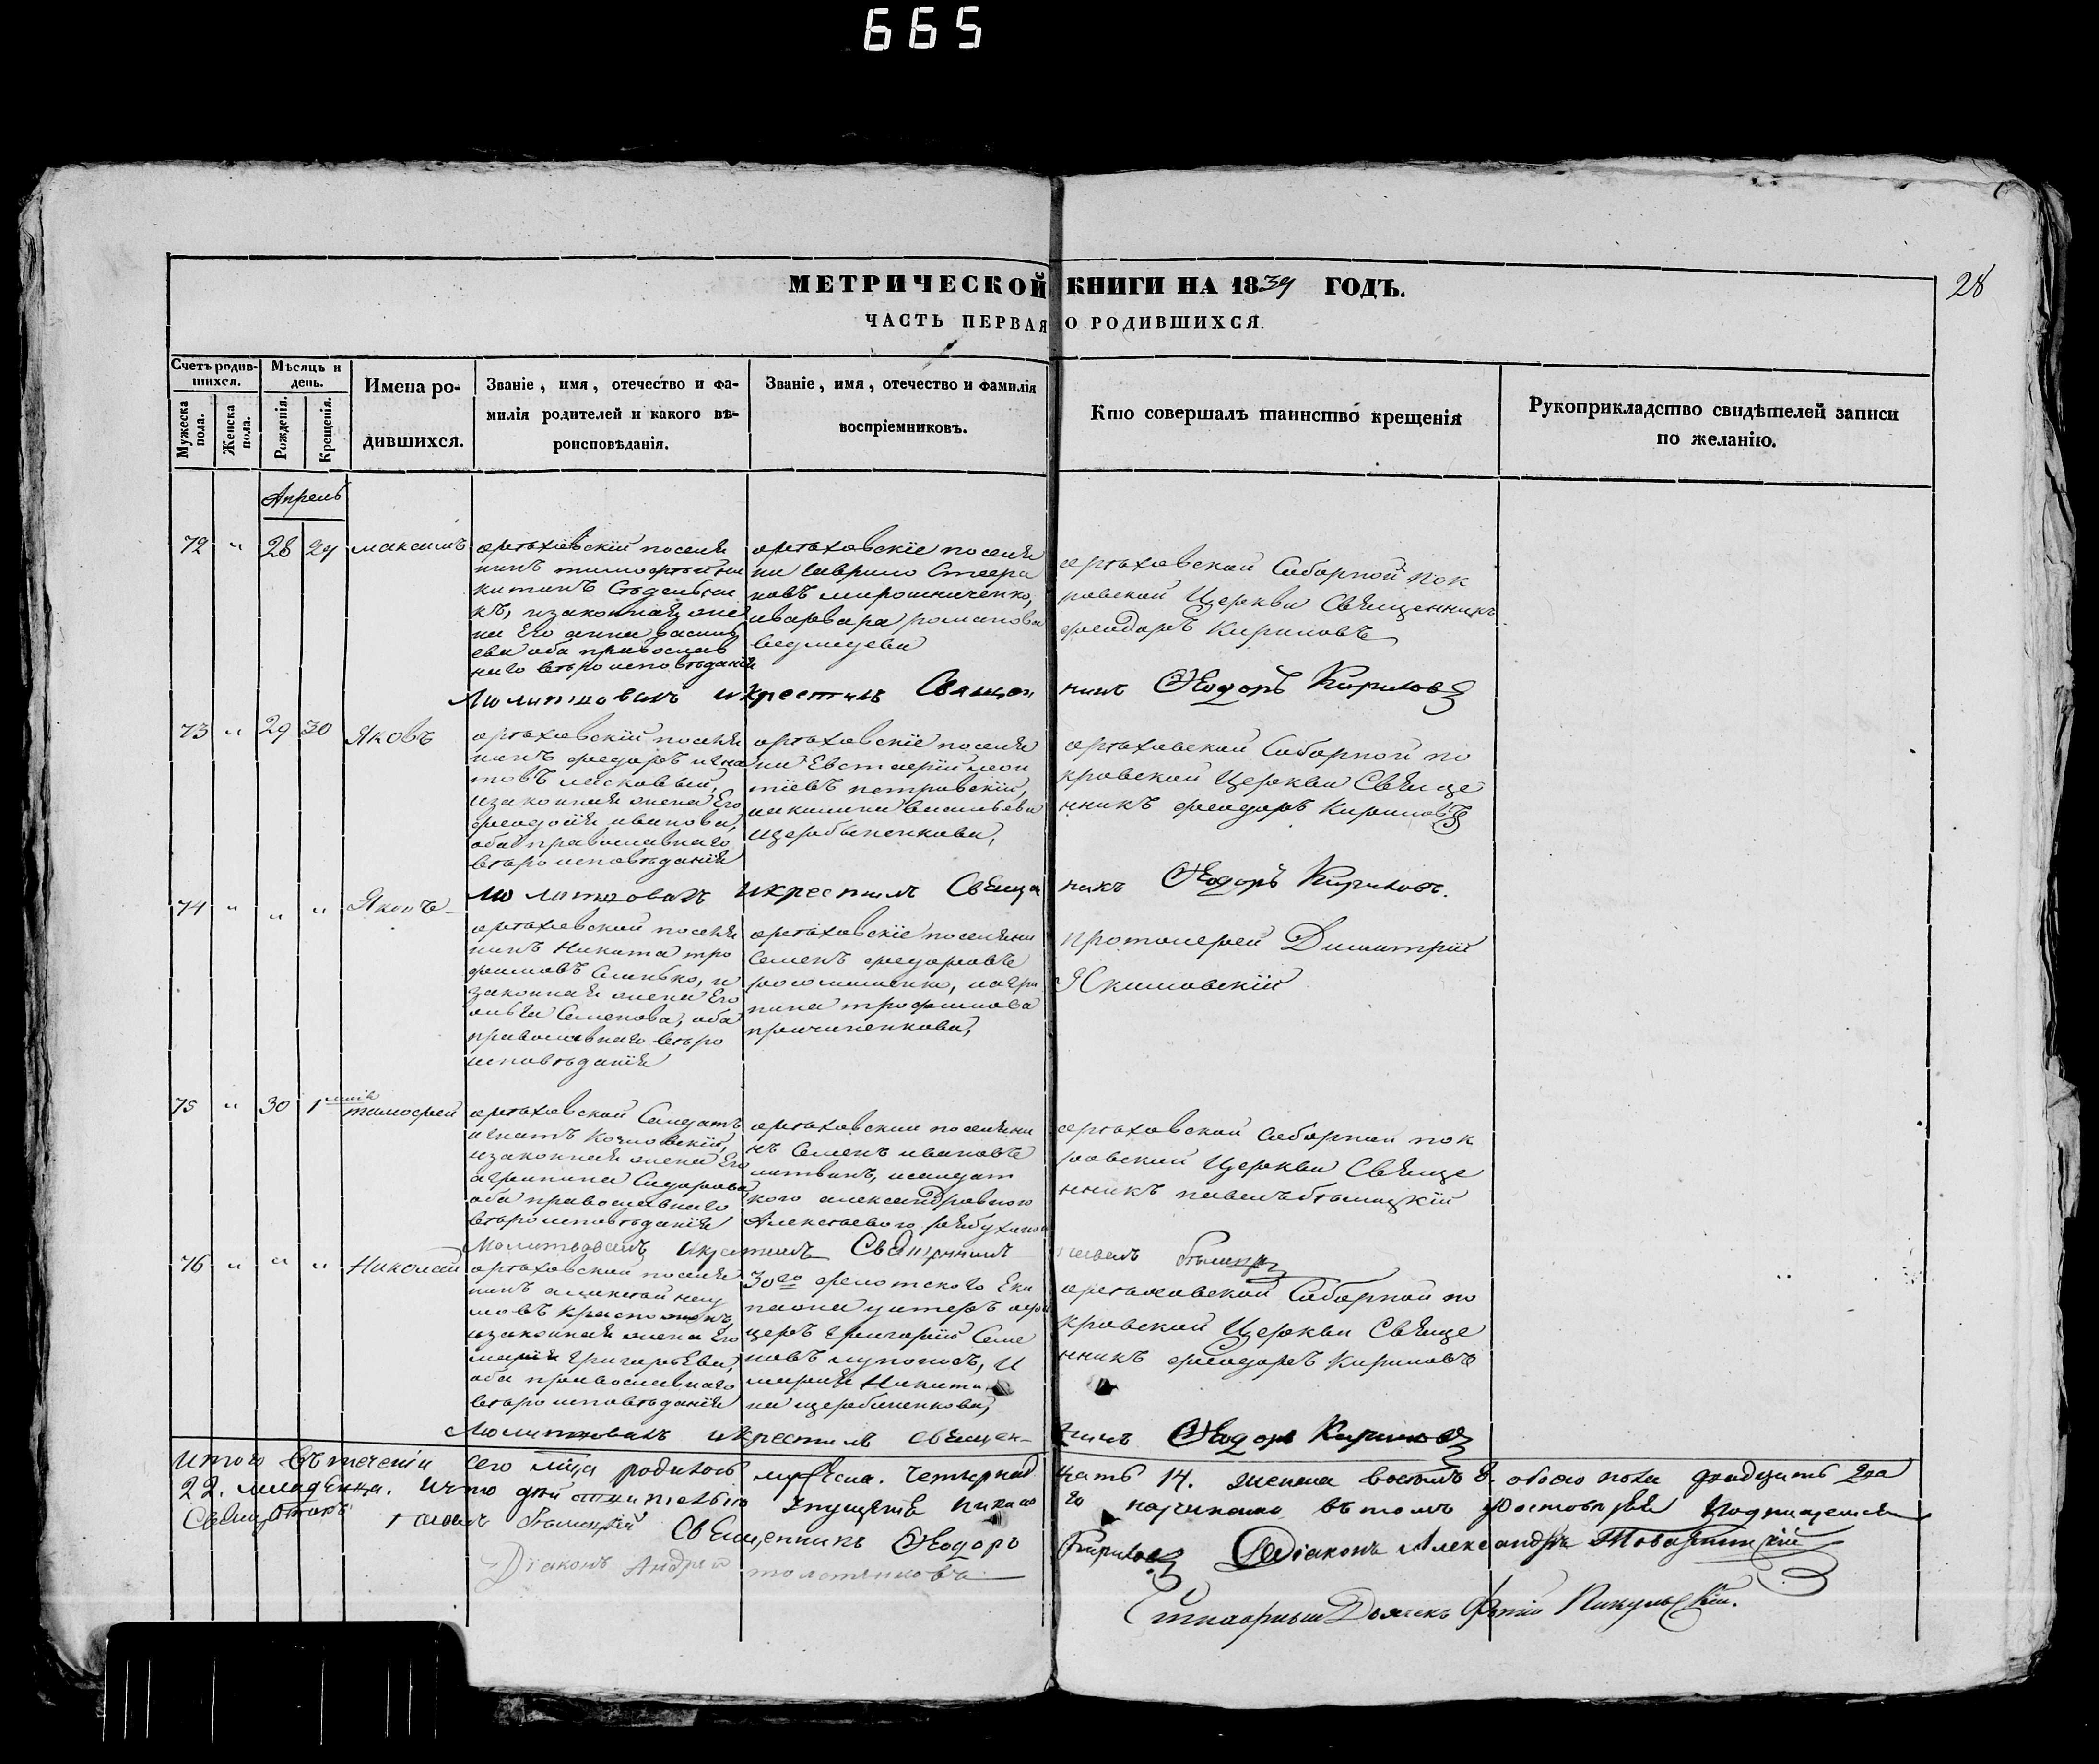 665
МЕТРИЧЕСКОЙ КНИГИ НА 1839 ГОДЪ.
28
ЧАСТЬ ПЕРВАЯ О РОДИВШИХСЯ
Счетъ родив-
шихся.
Мужеска пола.
Женска пола.
Мѣсяцъ и
день.
Рожденія.
Крещенія.
Имена ро-
дившихся.
Званіе, имя, отечество и фа-
милія родителей и какого вѣ-
роисповѣданія.
Званіе, имя, отечество и фамилія
воспріемниковъ.
Кто совершалъ таинство крещенія
Рукоприкладство свидѣтелей записи
по желанію.
Апрель
72 " 28 29 максимъ
орѣховскій поселя
нинъ тимофей ни
китинъ
изаконная же
на Его анна васил
ева оба православ
наго вѣроисповѣданія
орѣховскіе поселя
ни Гаврило Стефа
новъ мирошниченко,
иварвара романова
ведмедева
орѣховской Соборной пок
ровской Церкви Священникъ
феодоръ Кириловъ
Молитвовалъ икрестилъ Священ
никъ Ѳеодоръ Кириловъ
73 " 29 30 Яковъ
орѣховскій поселя
нинъ федоръ игна
товъ
изаконная жена Его
феодосія иванова,
оба православнаго
вѣроисповѣданія
орѣховскіе поселя
ни Евстафій леон
тіевъ петровскій,
иакилина васильева
щербыненкова,
орѣховской Соборной по
кровской Церкви Свяще
нникъ феодоръ Кириловъ
Молитвовалъ икрестилъ Свяще
никъ Ѳеодоръ Кириловъ.
74 " " " Яковъ
орѣховской поселя
нинъ Никита тро
фимовъ Слинько, и
законная жена Его
ольга Семенова, оба
православнаго вѣро
исповѣданія
орѣховскіе поселяни
Семенъ федоровъ
иагри
пина трофимова
протоіерей Димитрій
Якимовскій
75 " 30 1 маія тимофей
орѣховской Салдатъ
игнатъ Козловскій,
изаконная жена Его
агрипина Сидорова
оба православнаго
вѣроисповѣданія
орѣховскій поселяни
нъ Семенъ ивановъ
литвинъ,
орѣховской соборной пок
ровской Церкви Свяще
нникъ павелъ бѣлицкій
Молитвовалъ икрестилъ Священникъ
павелъ
76 " " " Николай
орѣховскій поселя
нинъ
изаконная жена Его
марія григорьева,
оба православнаго
вѣроисповѣданія
30го флотского Еки
пажа унтеръ офи
церъ Григорій Семе
новъ и
марія Никити
на щербиненкова,
орѣховской Соборной по
кровской Церкви Свяще
нникъ феодоръ Кириловъ
Молитвовалъ икрестилъ Священ
никъ Ѳеодоръ Кириловъ
Итого въ теченіи сего мца родилось мужеска. четырнад
цать 14. женска восемь 8. обоего пола двадцать два
22. младенца.
въ томъ подписуемся
Священникъ Ѳеодоръ
Кириловъ
Діаконъ Александръ
Діаконъ Андрей